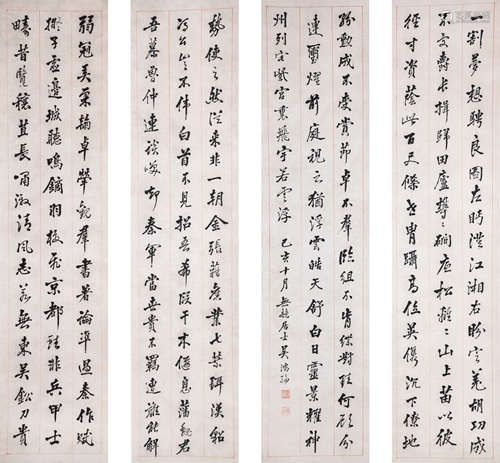 弱冠弄柔翰卓犖觀羣書著論準過秦作賦
擬子虛邊城聽鳴鏑羽檄飛京都雖非兵甲士
疇昔覽穰苴長嘯激清風志若無東吳鉛刀貴
一割夢想騁良圖左眄澄江湘右盼定羌胡功成
不受爵長揖歸田廬鬱鬱澗底松離離山上苗以彼
徑寸資蔭此百尺條世胄躡高位英俊沉下僚地
勢使之然從來非一朝金張藉舊業七葉珥漢貂
馮公豈不偉白首不見招吾希段干木偃息藩魏君
吾慕魯仲連談笑卻秦軍當世貴不羈遭難能解
紛勳成不受賞節卓不羣臨組不肯緤對珪何願分
連璽耀前庭視之猶浮雲皓天舒白日靈景耀神
州列宅紫宮裏飛宇若雲浮 己亥十月 居士吳鴻綸